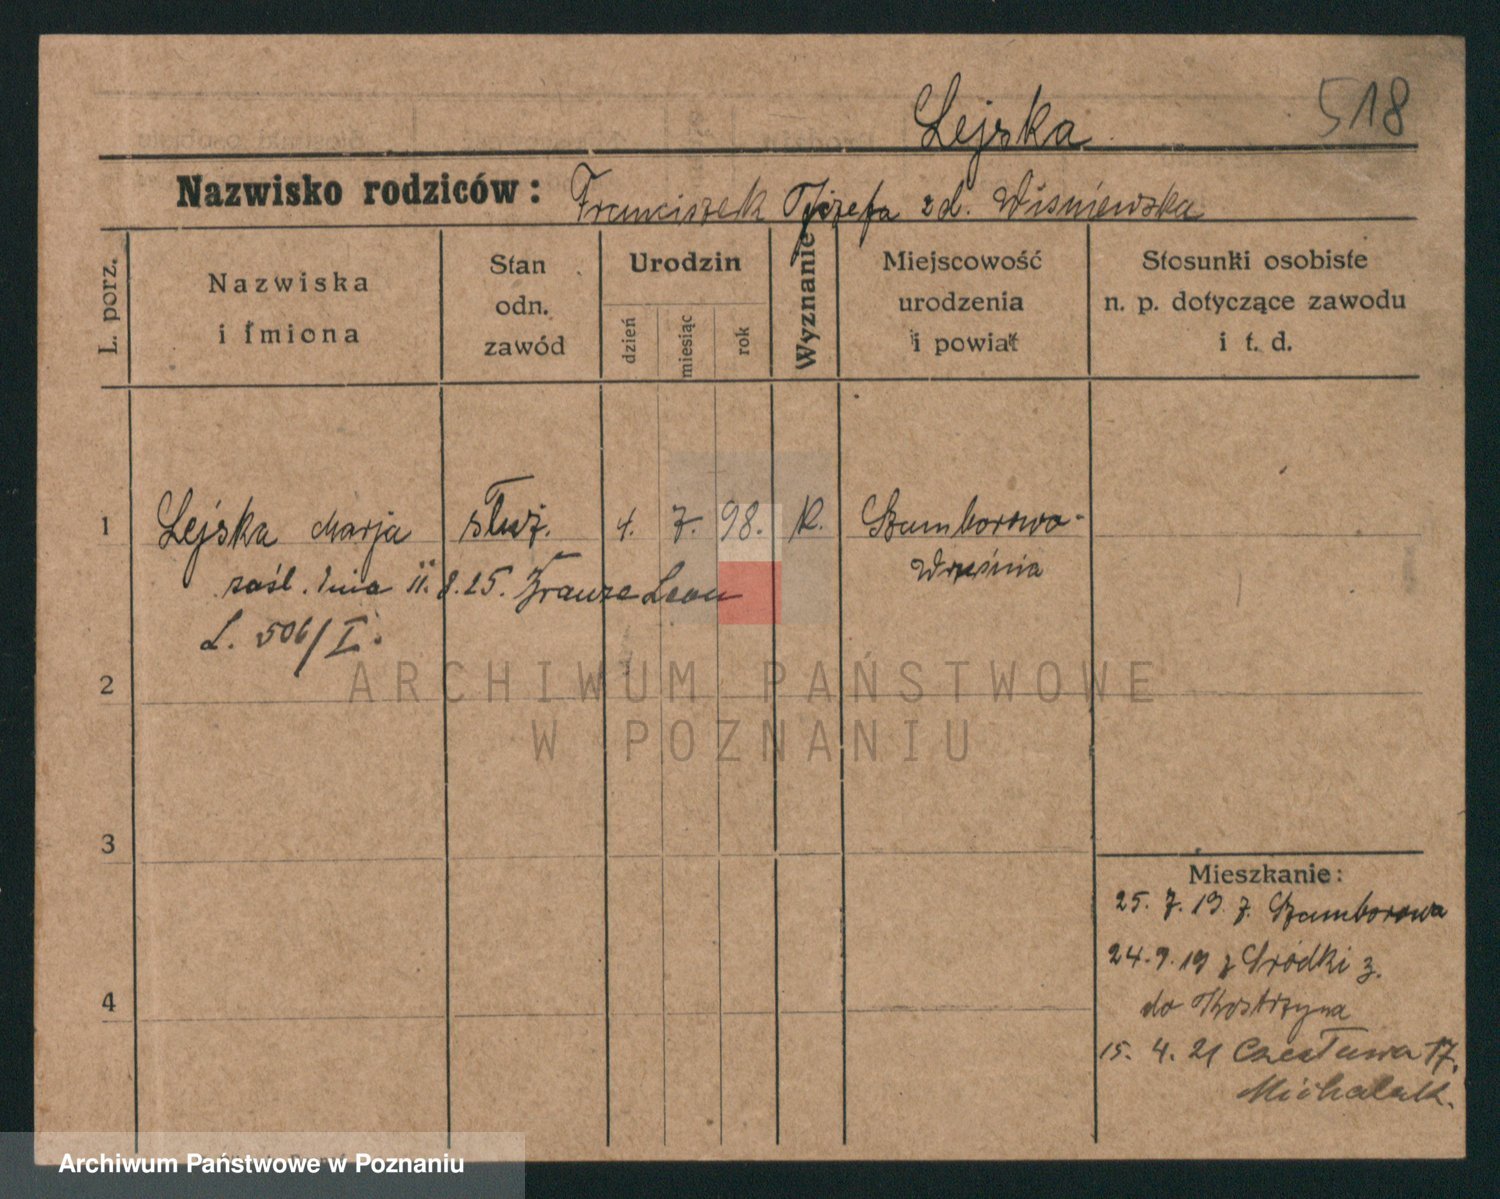 518
Lejska
Nazwisko rodziców: Franciszek Józefa zd. Wiśniewska
L. porz.
Nazwiska
i Imiona
Stan
odn.
zawód
Urodzin
dzień
miesiąc
rok
Wyznanie
Miejscowość
urodzenia
i powiat
Stosunki osobiste
n. p. dotyczące zawodu
i t. d.
1 Lejska Marja służ. 4. 7. 98. K. Szamborowo-
Września
zaśl. dnia 11. 8. 25. Franze Leon
L. 506/I.
2
3
4
Mieszkanie:
25. 7. 19. z. Szamborowa
24. 9. 19 z Śródki 3.
do Kostrzyna
15. 4. 21 Czesława 17.
Michalak.
ARCHIWUM PAŃSTWOWE
W POZNANIU
Archiwum Państwowe w Poznaniu